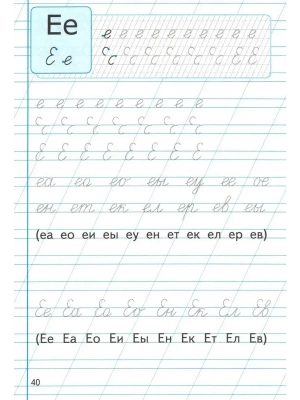 Ее
Е е
е е е е е е е е е е
Е Е
е е е е е е е е е
Е Е Е Е Е Е Е Е
еа ео ео еы еу ее ое
ен ет ек ел ер ев еы
(еа ео еи еы еу ен ет ек ел ер ев)
Ее Еа Ео Ен Ек Ел Ев
(Ее Еа Ео Еи Еы Ен Ек Ет Ел Ев)
40